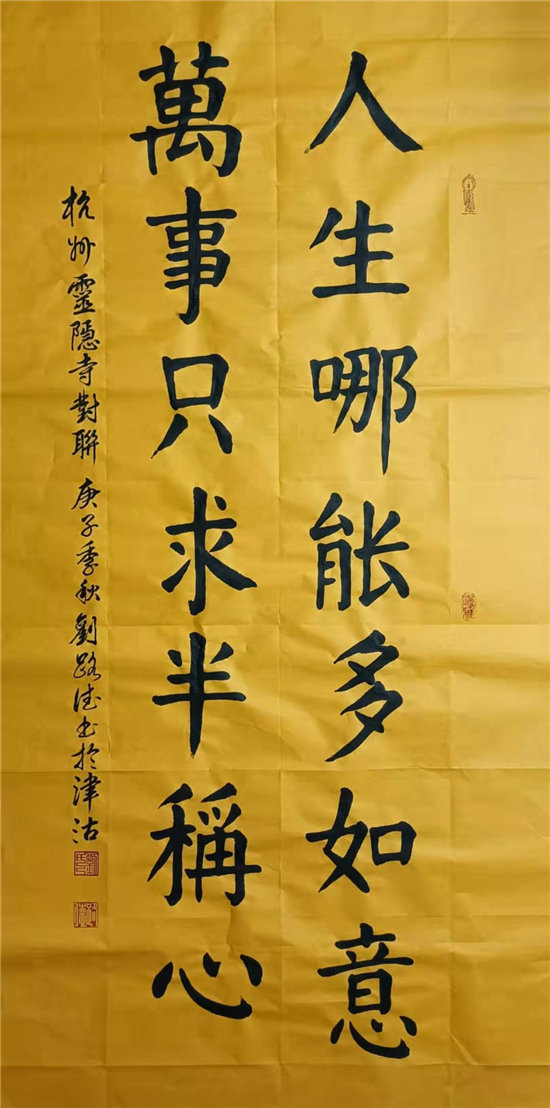 人生哪能多如意
萬事只求半稱心
杭州靈隱寺對聯 庚子季秋劉路德書於津沽